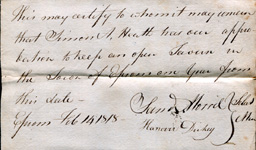 This may certify to whom it may concern
that Simon A. Heath has our appr
bation to keep an open Tavern in
the Town of Epsom one Year from
this date
Epsom Feb 14 1818
Saml Morrill